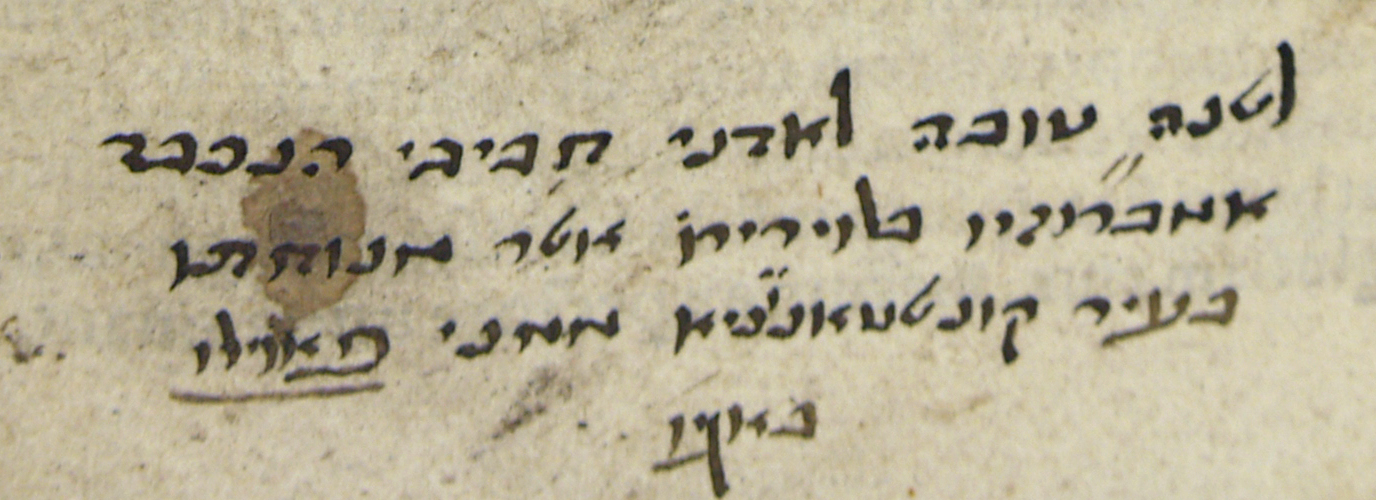 לשנה טובה לאדני חביבי הנכבד
אמברוזיו בלוירירו אשר מנוחתו
בעיר קונשטאנציא ממני פאולו
פאויו